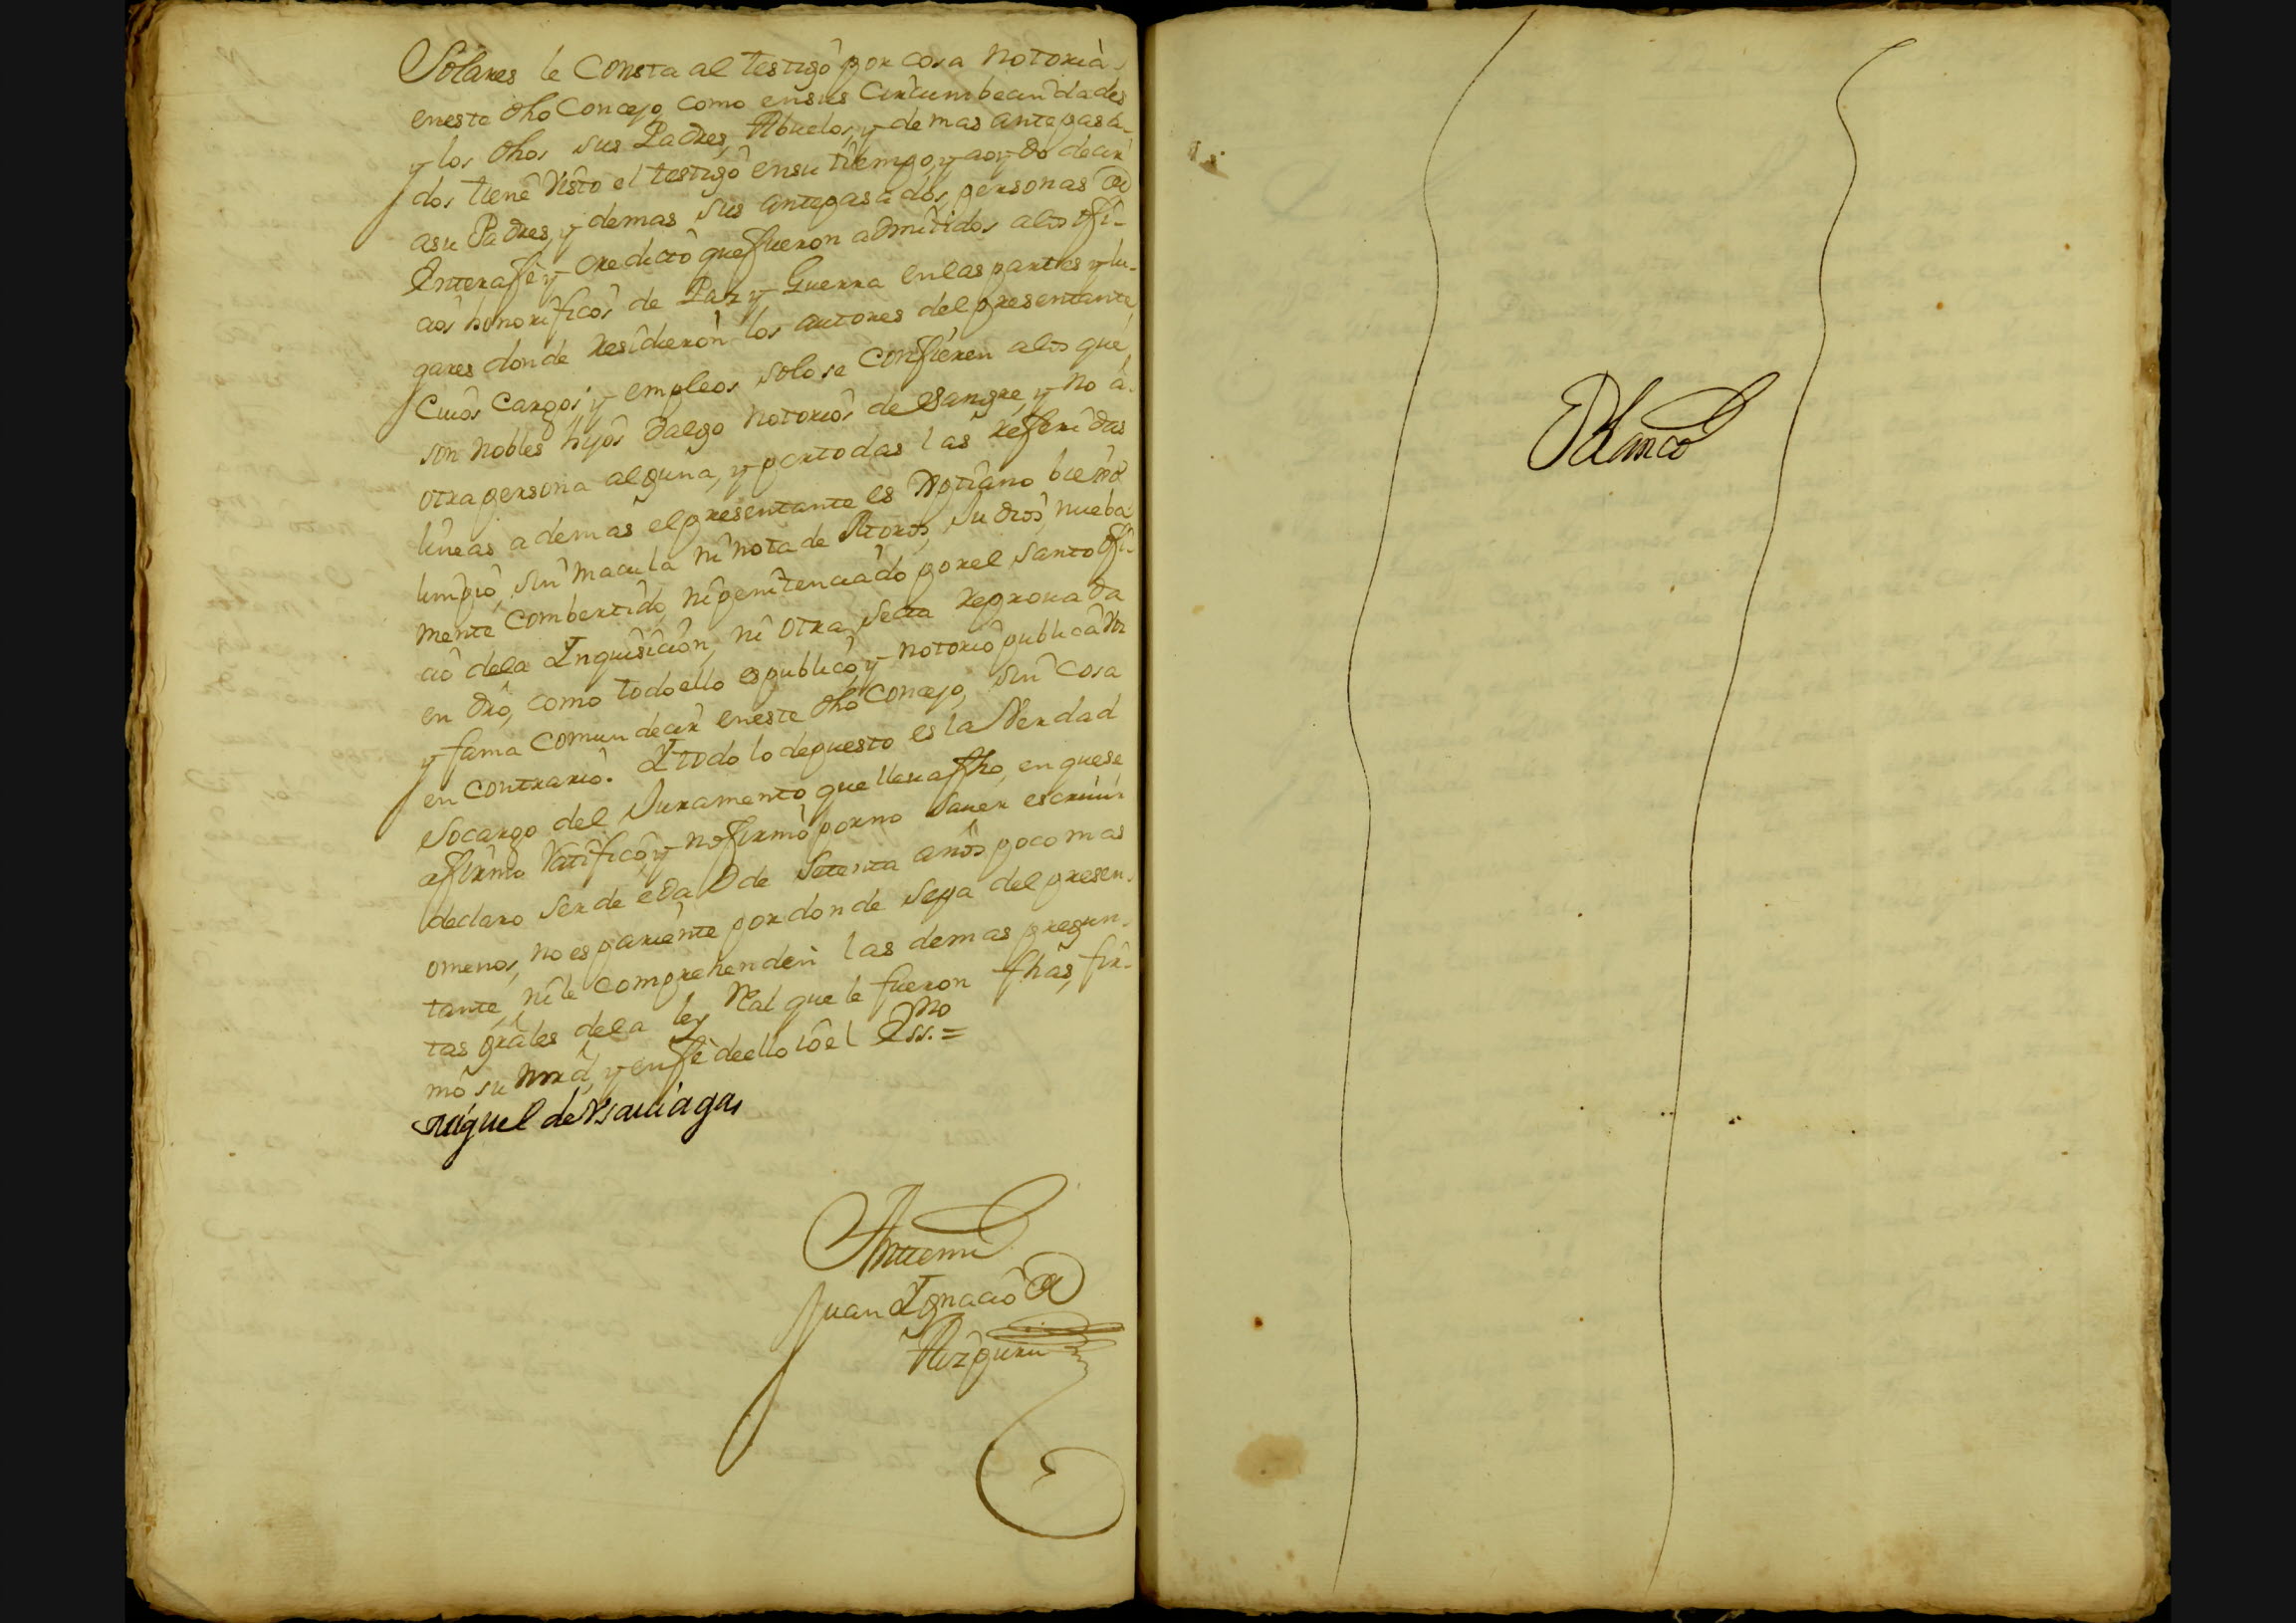 Solares le Consta al testigo por cosa notoria
en este dho Concejo como en sus Circumbecindades
y los dhos sus Padres, Abuelos, y demas antepasa-
dos tiene visto el testigo en su tiempo, y a oydo decir
a su Padres, y demas sus antepasados, personas de
Entera fè y Credicto que fueron admitidos a los ofi-
cios honorificos de Paz y Guerra en las partes y lu-
gares donde residieron los autores del presentante,
Cuios Cargos, y empleos solo se Confieren a los que
son nobles hijos dalgo notorios de Sangre, y no à
otra persona alguna, y por todas las referidas
lineas ademas el presentante es Xptiano biexo
limpio, sin macula ni nota de Moros, Judios, nueba
mente Combertido, ni penitenciado por el Santo ofi-
cio de la Inquisicion, ni otra secta reprovada
en dro, como todo ello es publico, y notorio publica voz
y fama comun decir en este dho Concejo, sin cosa
en contrario. Y todo lo depuesto es la Verdad
socargo del Juramento que lleva fho, en que se
afirmo Ratifico, y no firmò por no saver escriuir
declaro ser de edad de setenta años poco mas
omenos, no es pariente por donde sepa del presen-
tante, ni le comprehenden las demas pregun-
tas grâles de la ley Real que le fueron fhas, fir-
mò su mrd, y en fè de ello io el Essno. =
Miguel de Ysauiaga
Antemi
Juan Ignacio de
Aizpuru
Blanco